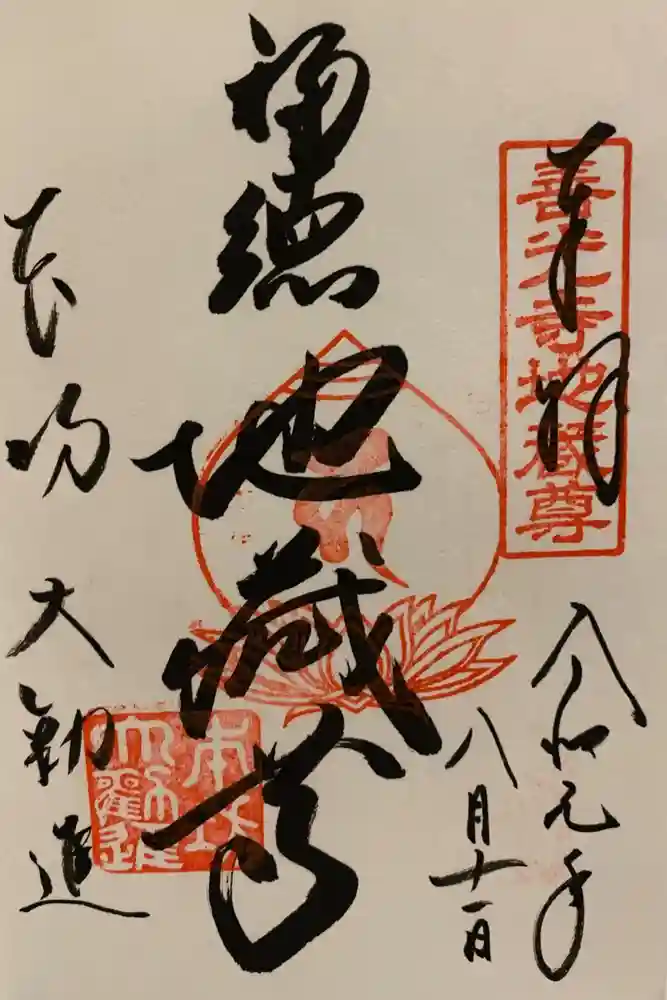 奉拝
善光寺地蔵尊
令和元年
八月十一日
福徳
地蔵尊
本坊 大勧進